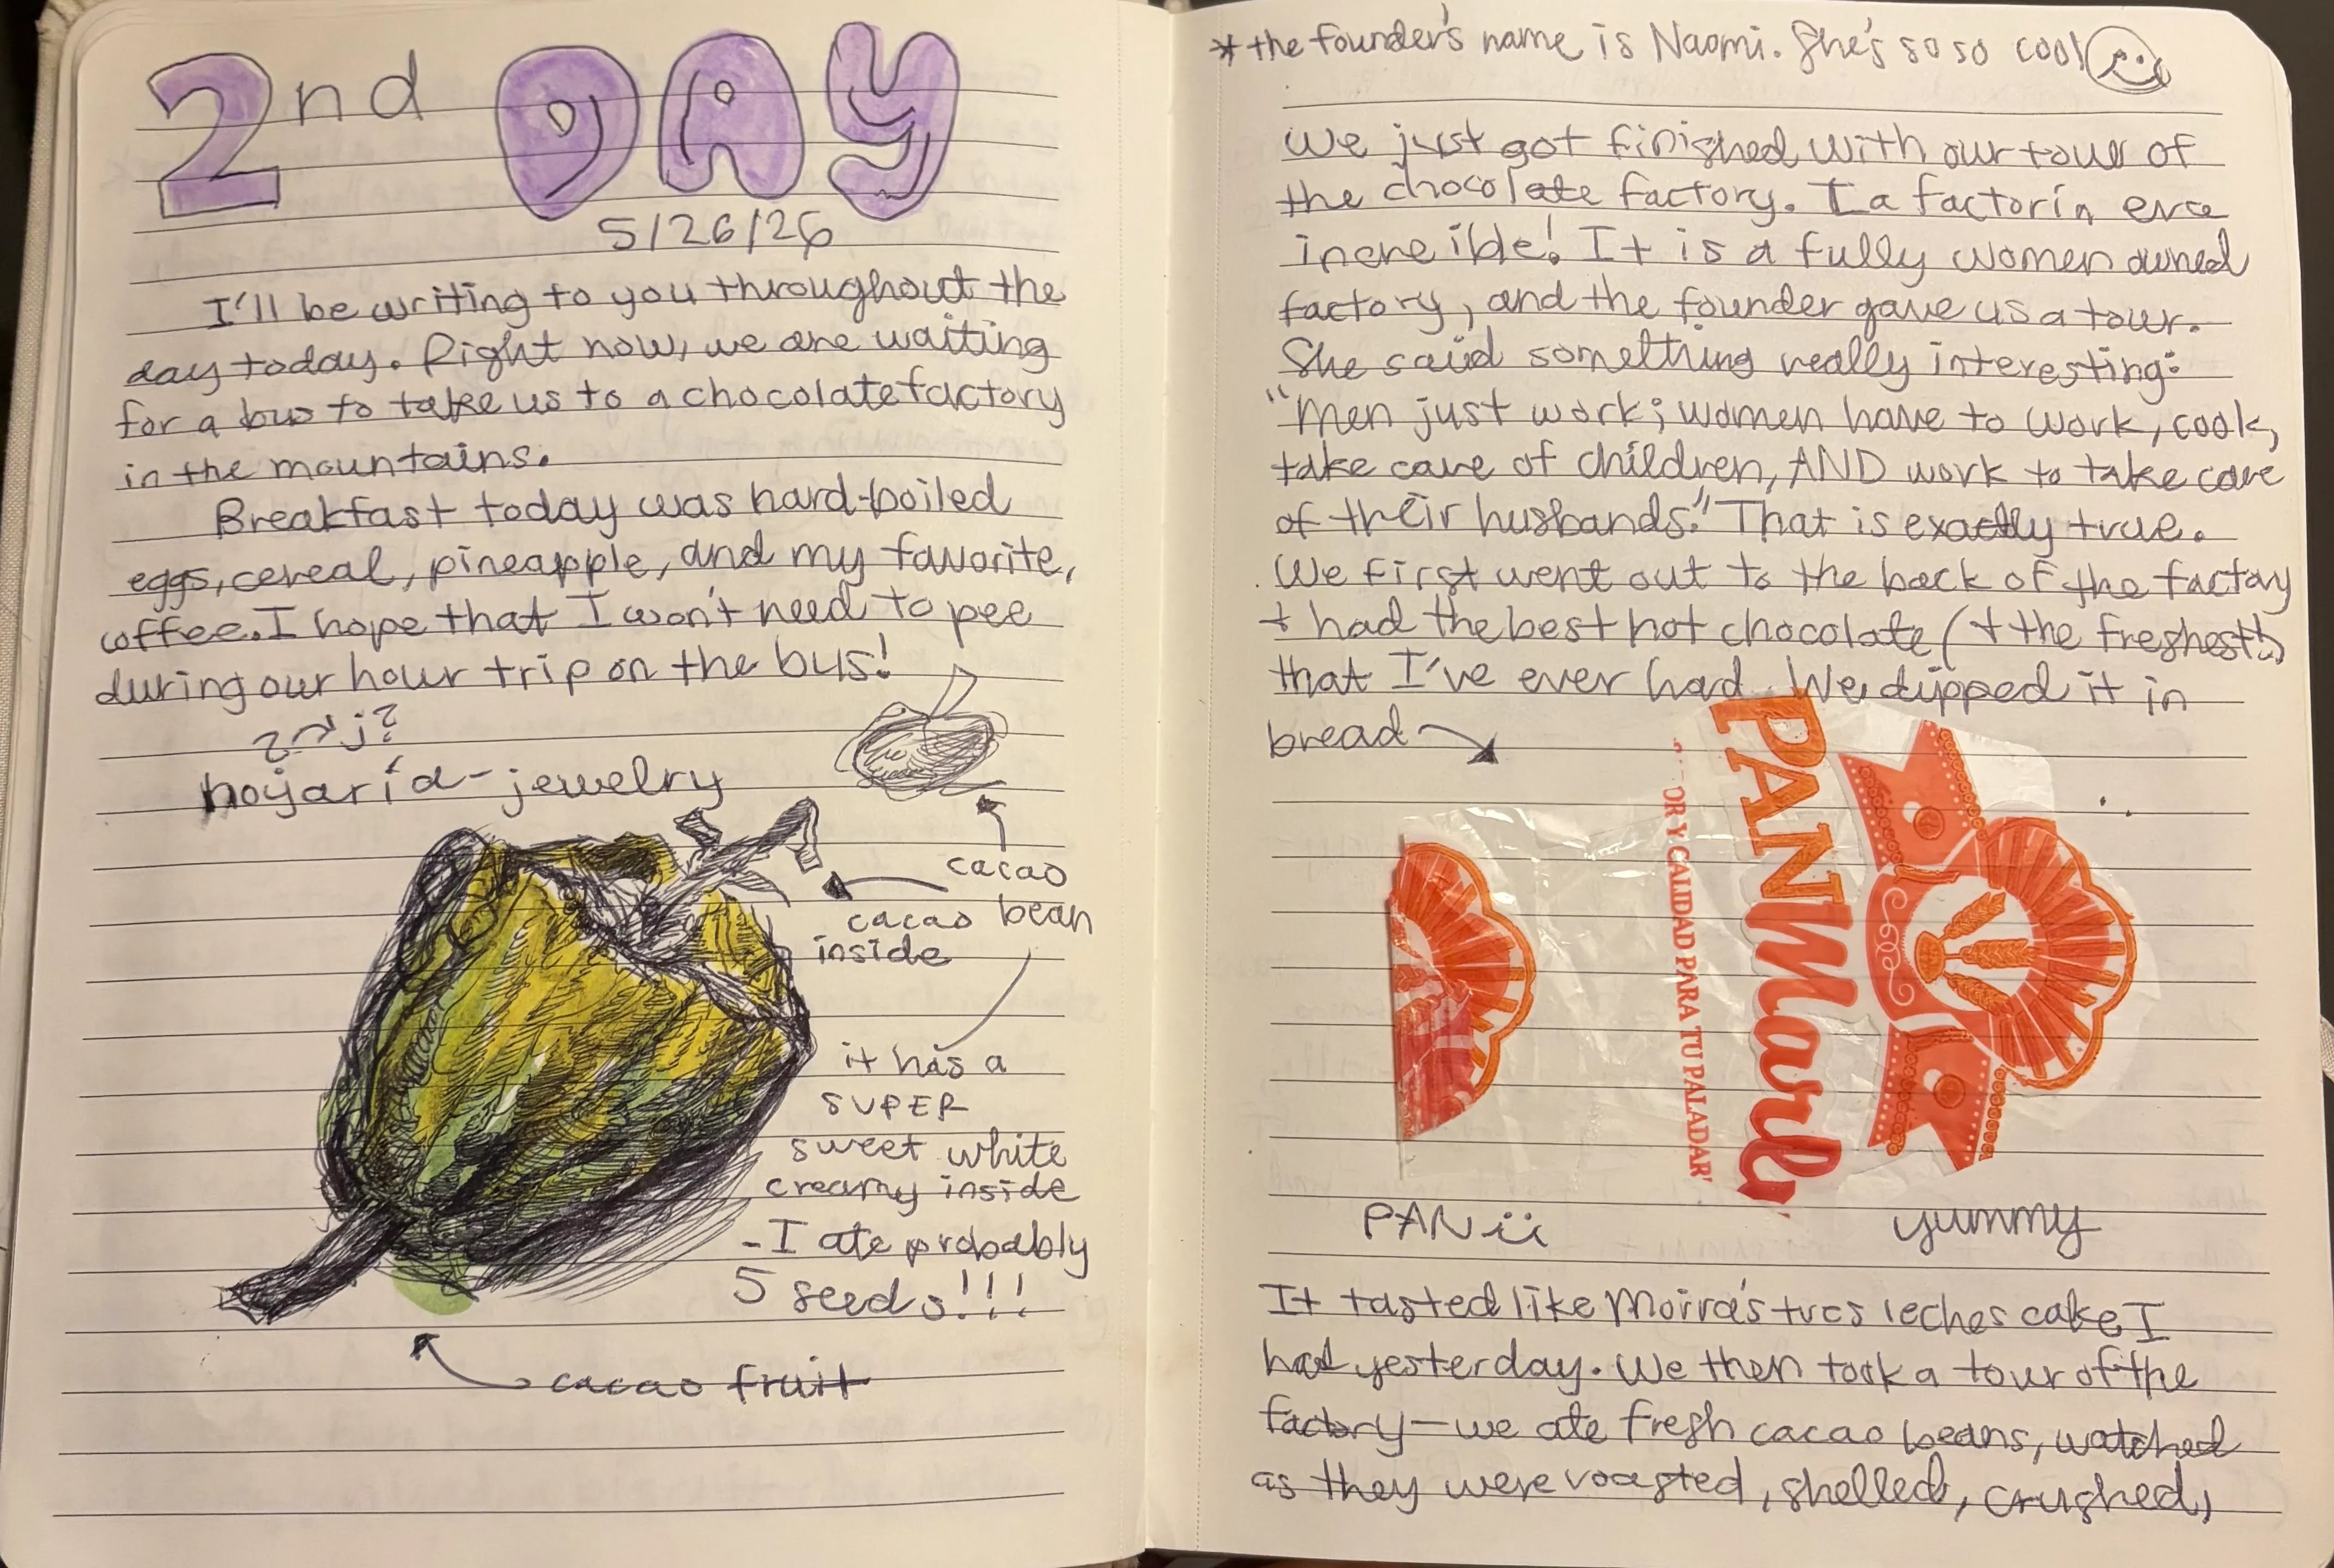 2nd DAY
5/26/26
I'll be writing to you throughout the
day today. Right now, we are waiting
for a bus to take us to a chocolate factory
in the mountains.
Breakfast today was hard-boiled
eggs, cereal, pineapple, and my favorite,
coffee. I hope that I won't need to pee
during our hour trip on the bus!
j?
hoyaría - jewelry
cacao
bean
cacao
inside
it has a
SUPER
sweet white
creamy inside
- I ate probably
5 seeds!!!
cacao fruit
* the founder's name is Naomi. She's so so cool
We just got finished with our tour of
the chocolate factory. La factoría era
increíble! It is a fully women owned
factory, and the founder gave us a tour.
She said something really interesting:
"Men just work; women have to work, cook,
take care of children, AND work to take care
of their husbands." That is exactly true.
We first went out to the back of the factory
+ had the best hot chocolate (+ the freshest!)
that I've ever had. We dipped it in
bread
PAN Marly
OR Y CALIDAD PARA TU PALADAR"
PAN
yummy
It tasted like Moira's tres leches cake I
had yesterday. We then took a tour of the
factory—we ate fresh cacao beans, watched
as they were roasted, shelled, crushed,